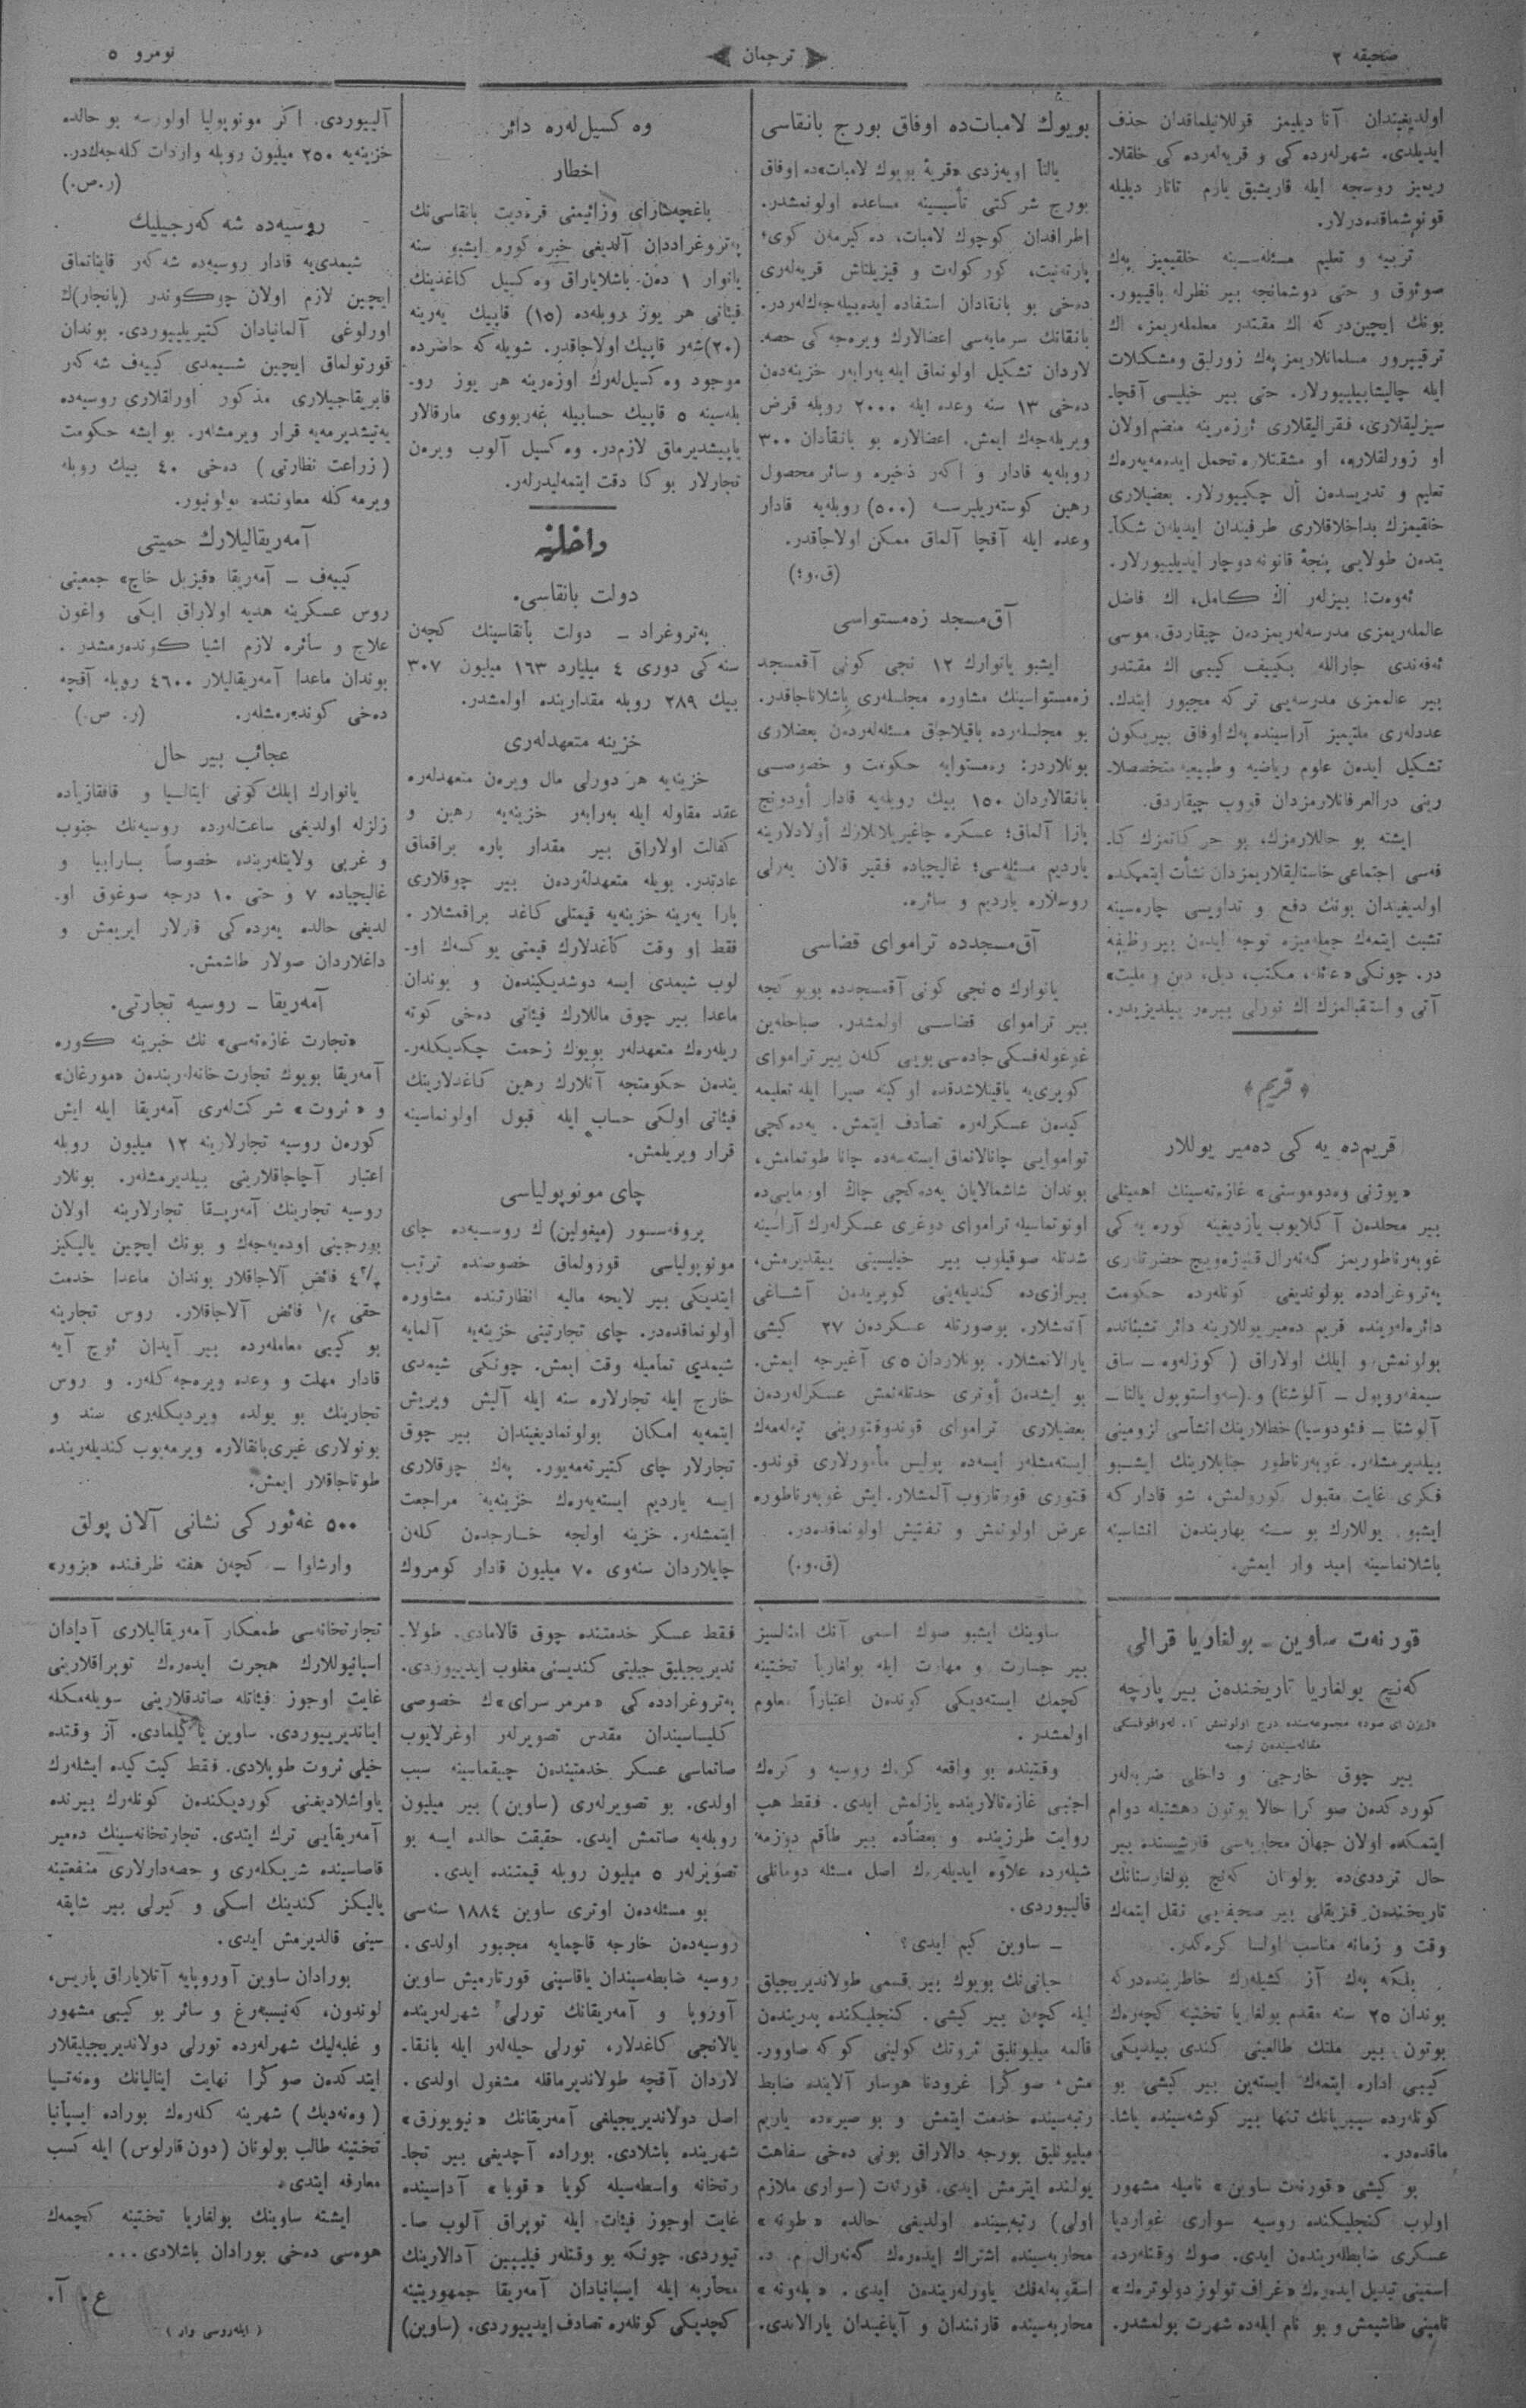 صحیفه ۲
ترجمان
نومرو ۵
اولدیغیندان آنا دیلیمز قوللانیلماقدان حذف
ایدیلدی. شهرلەردەكی و قریەلەردەكی خلقلا-
ریمیز روسچه ایله قاریشیق یارم تاتار دیلیله
قونوشماقدەدرلار.
تربیه و تعلیم مسئلەسینه خلقیمیز پەك
صوئوق و حتی دوشمانجه بیر نظرله باقییور.
بونك ایچین‌دركه اك مقتدر معلملەریمز، اك
ترقیپرور مسلمانلاریمز پەك زورلیق ومشكلات
ایله چالیشابیلییورلار. حتی بیر خیلیسی آقچا-
سیزلیقلاری، فقرالیقلاری اوزەرینه منضم اولان
او زورلقلارە، او مشقتلارە تحمل ایدەمەیەرەك
تعلیم و تدریسدەن أل چكییورلار. بعضیلاری
خلقیمزك بداخلاقلاری طرفیندان ایدیلەن شكا-
یتدەن طولایی پنجهٔ قانونه دوچار ایدیلییورلار.
ئەوەت! بیزلەر اڭ كامل، اك فاضل
عالملەریمزی مدرسەلەریمزدەن چیقاردق. موسی
ئەفەندی جارالله بیكییف كیبی اك مقتدر
بیر عالممزی مدرسەیی تركه مجبور ایتدك.
عددلەری ملتیمیز آراسیندە پەك اوفاق بیر یكون
تشكیل ایدەن علوم ریاضیه و طبیعیه متخصصلا-
رینی درالعرفانلارمزدان قووب چیقاردق.
ایشته بو حاللارمزك، بو حركاتمزك كا-
فەسی اجتماعی خاستالیقلاریمزدان نشأت ایتمیكدە
اولدیغیندان بونك دفع و تداویسی چارەسینه
تشبث ایتمەك جملەمیزە توجه ایدەن بیر وظیفه
در. چونكی «عائله، مكتب، دیل، دین و ملیت»
آتی و استقبالمزك اك نورلی بیرەر ییلدیزیدر.
﴿ قریم ﴾
قریم‌دە یەكی دەمیر یوللار
«یوژنی وەدوموستی» غازەتەسینك اهمیتلی
بیر محلدەن آكلایوب یازدیغینه كورە یەكی
غوبەرناطوریمز گەنەرال قنیاژەویچ حضرتلەری
پەتروغراددە بولوندیغی كونلەردە حكومت
دائرەلەریندە قریم دەمیر یوللارینه دائر تشبثاتدە
بولونمش و ایلك اولاراق ( كوزلەوە ــ ساق
سیمفەروپول ــ آلوشتا) و (سەواستوپول یالتا ــ
آلوشتا ــ فئودوسیا) خطلارینك انشأسی لزومینی
بیلدیرمشلەر. غوبەرناطور جنابلارینك ایشبو
فكری غایت مقبول كورولمش، شو قادارکه
ایشبو یوللارك بو سنه بهاریندەن انشاسینه
باشلانماسینه امید وار ایمش.
بویوك لامبات‌دە اوفاق بورج بانقاسی
یالتا اویەزدی «قریهٔ بویوك لامبات»دە اوفاق
بورج شركتی تأسیسینه مساعدە اولونمشدر.
اطرافدان كوچوك لامبات، دەكیرمەن كوی؛
پارتەنیت، كوركولەت و قیزیلتاش قریەلەری
دەخی بو بانقادان استفادە ایدەبیلەجەك‌لەردر.
بانقانك سرمایەسی اعضالارك ویرەجەكی حصه-
لاردان تشكیل اولونماق ایله بەرابەر خزینەدەن
دەخی ۱۳ سنه وعدە ایله ۲۰۰۰ روبله قرض
ویریلەجەك ایمش. اعضالارە بو بانقادان ۳۰۰
روبلەیه قادار و اكەر ذخیرە و سائر محصول
رهین كوستەریلیرسه (۵۰۰) روبلەیه قادار
وعدە ایله آقچا آلماق ممكن اولاجاقدر.
(ق.و؛)
آق‌مسجد زەمستواسی
ایشبو یانوارك ۱۲ نجی كونی آقمسجد
زەمستواسینك مشاورە مجلسلەری باشلاناجاقدر.
بو مجلسلەردە باقیلاجاق مسئلەلەردەن بعضلاری
بونلاردر: زەمستوایه حكومت و خصوصی
بانقالاردان ۱۵۰ بیك روبلەیه قادار أودونچ
پارا آلماق؛ عسكرە چاغیریلانلارك أولادلارینه
یاردیم مسئلەسی؛ غالیچیادە فقیر قالان یەرلی
روسلارە یاردیم و سائرە.
آق‌مسجددە تراموای قضاسی
یانوارك ۵ نجی كونی آقمسجددە بویوكجه
بیر تراموای قضاسی اولمشدر. صباحلەین
غوغولەفسكی جادەسی بویی كلەن بیر تراموای
كوپری‌یه یاقینلاشدقدە اوكینه صیرا ایله تعلیمه
كیدەن عسكرلەرە تصادف ایتمش. یەدەكچی
توامواییی چانالانماق ایستەسەدە چانا طوتمامش،
بوندان شاشمالایان یەدەكچی چاڭ اورمایی‌دە
اونوتماسیله تراموای دوغری عسكرلەرك آراسینه
شدتله صوقیلوب بیر خیلیسینی ییقدیرمش،
بیرازی‌دە كندیلەینی كوپریدەن آشاغی
آتمشلار. بوصورتله عسكردەن ۲۷ كیشی
یارالانمشلار. بونلاردان ۵ی آغیرجه ایمش.
بو ایشدەن أوتری حدتلەنمش عسكرلەردەن
بعضیلاری تراموای قوندوقتورینی تپەلەمەك
ایستەمشلەر ایسەدە پولیس مأمورلاری قوندو-
قتوری قورتاروب آلمشلار. ایش غوبەرناطورە
عرض اولونمش و تفتیش اولونماقدەدر.
(ق.و.)
وەكسیل‌لەرە دائر
اخطار
باغچه‌سارای وزائیمنی قرەدیت بانقاسی‌نك
پەتروغراددان آلدیغی خبرە كورە ایشبو سنه
یانوار ۱ دەن باشلایاراق وەكسیل كاغدینك
فیئاتی هر یوز روبلەدە (۱۵) قاپیك یەرینه
(۲۰)شەر قاپیك اولاجاقدر. شویله‌كه حاضردە
موجود وەكسیل‌لەرك اوزەرینه هر یوز رو-
بلەسینه ۵ قاپیك حسابیله غەربووی مارقالار
یاپیشدیرماق لازم‌در. وەكسیل آلوب ویرەن
تجارلار بوكا دقت ایتمەلیدرلەر.
داخلیه
دولت بانقاسی.
پەتروغراد ــ دولت بأنقاسینك كچەن
سنەكی دوری ٤ میلیارد ۱٦۳ میلیون ۳۰۷
بیك ۲۸۹ روبله مقدارینده اولمشدر.
خزینه متعهدلەری
خزینەیه هر دورلی مال ویرەن متعهدلەرە
عقد مقاوله ایله بەرابەر خزینەیه رهین و
كفالت اولاراق بیر مقدار پارە براقماق
عادتدر. بویله متعهدلەردەن بیر چوقلاری
پارا یەرینه خزینەیه قیمتلی كاغد براقمشلار.
فقط او وقت كأغدلارك قیمتی یوكسەك او-
لوب شیمدی ایسه دوشدیكیندەن و بوندان
ماعدا بیر چوق ماللارك فیئاتی دەخی كوته
ریلەرەك متعهدلەر بویوك زحمت چكدیكلەر-
یندەن حكومتجه آنلارك رهین كاغدلارینك
فیئاتی اولكی حساب ایله قبول اولونماسینه
قرار ویریلمش.
چای مونوپولیاسی
پروفەسسور (میغولین) ك روسیەدە چای
مونوپولیاسی قوزولماق خصوصنده ترتیب
ایتدیكی بیر لایحه مالیه انظارتنده مشاورە
أولونماقدەدر. چای تجارتینی خزینەیه آلمایه
شیمدی تمامیله وقت ایمش. چونكی شیمدی
خارج ایله تجارلارە سنه ایله آلیش ویریش
ایتمەیه امكان بولونمادیغیندان بیر چوق
تجارلار چای كتیرتەمەیور. پەك چوقلاری
ایسه یاردیم ایستەیەرەك خزینەیه مراجعت
ایتمشلەر. خزینه اولجه خارجدەن كلەن
چایلاردان سنەوی ۷۰ میلیون قادار كومروك
آلییوردی. اكر مونوپولیا اولورسه بو حالده
خزینەیه ۲۵۰ میلیون روبله واردات كلەجەك‌در.
(ر.ص.)
روسیەدە شەكەرجیلیك
شیمدی‌یه قادار روسیەدە شەكەر قایناتماق
ایچین لازم اولان چوكوندر (پانجار)ك
اورلوغی آلمانیادان كتیریلییوردی. بوندان
قورتولماق ایچین شیمدی كییەف شەكەر
فابریقاجیلاری مذكور اوراقلاری روسیەدە
یەتیشدیرمەیه قرار ویرمشلەر. بو ایشه حكومت
(زراعت نظارتی) دەخی ٤۰ بیك روبله
ویرمەكله معاونتدە بولونیور.
آمەریقالیلارك حمیتی
كییەف ــ آمەریقا «قیزیل خاچ» جمعیتی
روس عسكرینه هدیه اولاراق ایكی واغون
علاج و سأئرە لازم اشیا كوندەرمشدر.
بوندان ماعدا آمەریقالیلار ٤٦۰۰ روبله آقچه
دەخی كوندەرمشلەر. (ر. ص.)
عجائب بیر حال
یانوارك ایلك‌كونی ایتالیا و قافقازیادە
زلزله اولدیغی ساعت‌لەردە روسیەنك جنوب
و غربی ولایتلەریندە خصوصاً بسارابیا و
غالیچیادە ۷ و حتی ۱۰ درجه سوغوق او-
لدیغی حالده یەردەكی قارلار ایریمش و
داغلاردان صولار طاشمش.
آمەریقا ــ روسیه تجارتی.
«تجارت غازەتەسی» نك خبرینه كورە
آمەریقا بویوك تجارت‌خانەلەریندەن «مورغان»
و «ثروت» شركت‌لەری آمەریقا ایله ایش
كورەن روسیه تجارلارینه ۱۲ میلیون روبله
اعتبار آچاجاقلارینی بیلدیرمشلەر. بونلار
روسیه تجارینك آمەریقا تجارلارینه اولان
بورجینی اودەیەجەك و بونك ایچین یالیكیز
فائض آلاجاقلار بوندان ماعدا خدمت
حقی ۱/۲ فائض آلاجاقلار. روس تجارینه
بو كیبی معاملەردە بیر آیدان ئوچ آیه
قادار مهلت و وعدە ویرەجەكلەر. و روس
تجارینك بو یولده ویردیكلەری سند و
بونولاری غیری‌بانقالارە ویرمەیوب كندیلەریندە
طوتاجاقلار ایمش.
۵۰۰ غەئورکی نشانی آلان پولق
وارشاوا ــ كچەن هفته ظرفنده «بزور»
قورنەت ساوین ــ بولغاریا قرالی
كەنچ بولغاریا تاریخندەن بیر پارچه
مقالەسیندەن ترجمه
بیر چوق خارجی و داخلی ضربەلەر
كوردكدەن صوكرا حالا بوتون دهشتیله دوام
ایتمكدە اولان جهان محاربەسی قارشیسندە بیر
حال ترددی‌دە بولونان كەنچ بولغارستانك
تاریخندەن قیزیقلی بیر صحیفەیی نقل ایتمەك
وقت و زمانه مناسب اولسا كرەكدر.
بلكه پەك آز كشیلەرك خاطرینده‌دركه
بوندان ۲۵ سنه مقدم بولغاریا تختینه كچەرەك
بوتون بیر ملتك طالعینی كندی بیلدیكی
كیبی ادارە ایتمەك ایستەین بیر كیشی بو
كونلەردە سیبریانك تنها بیر كوشەسیندە یاشا-
ماقدەدر.
بو كیشی «قورنەت ساوین» نامیله مشهور
اولوب كنجلیكنده روسیه سواری غواردیا
عسكری ضابطلەریندەن ایدی. صوك وقتلەردە
اسمینی تبدیل ایدەرەك «غراف تولوز دولوترەك»
نامینی طاشیمش و بو نام ایله‌دە شهرت بولمشدر.
ساوینك ایشبو صوك اسمی آنك امثالسیز
بیر جسارت و مهارت ایله بولغاریا تختینه
كچمك ایستەدیكی كوندەن اعتباراً معلوم
اولمشدر.
وقتیندە بو واقعه كرەك روسیه و كرەك
اجنبی غازەتالاریندە یازلمش ایدی. فقط هپ
روایت طرزیندە و بعضأدە بیر طاقم دوزمه
شیلەردە علاوە ایدیلەرەك اصل مسئله دومانلی
قالییوردی.
ــ ساوین كیم ایدی؟
حیاتی‌نك بویوك بیر قسمی طولاندیریجیلق
ایله كچەن بیر كیشی. كنجلیكنده پدریندەن
قالمه میلیونلیق ثروتك كولینی كوكه صاوور-
مش، صوكرا غرودنا هوسار آلایندە ضابط
رتبەسیندە خدمت ایتمش و بو صیرەدە یاریم
میلیونلیق بورجه دالاراق بونی دەخی سفاهت
یولندە ایترمش ایدی. قورنەت (سواری ملازم
اولی) رتبەسیندە اولدیغی حالدە «طونه»
محاربەسیندە اشتراك ایدەرەك گەنەرال م. د.
اسقوبەلەفك یاورلەریندەن ایدی. «پلەونه»
محاربەسیندە قارنندان و آیاغیندان یارالاندی.
فقط عسكر خدمتنده چوق قالمادی. طولا-
ندیریجیلیق جبلتی كندیسنی مغلوب ایدییوردی.
پەتروغراددەكی «مرمر سرای»ك خصوصی
كلیساسیندان مقدس تصویرلەر اوغرلایوب
صاتماسی عسكر خدمتیندەن چیقماسینه سبب
اولدی. بو تصویرلەری (ساوین) بیر میلیون
روبلەیه صاتمش ایدی. حقیقت حالده ایسه بو
تصویرلەر ۵ میلیون روبله قیمتنده ایدی.
بو مسئلەدەن اوتری ساوین ۱۸۸٤ سنەسی
روسیەدەن خارجه قاچمایه مجبور اولدی.
روسیه ضابطەسیندان یاقاسینی قورتارمیش ساوین
آوروپا و آمەریقانك تورلی شهرلەریندە
یالانجی كاغدلار، تورلی حیلەلەر ایله بانقا-
لاردان آقچه طولاندیرماقله مشغول اولدی.
اصل دولاندیریجیلغی آمەریقانك «نیویورق»
شهریندە باشلادی. بورادە آچدیغی بیر تجا-
رتخانه واسطەسیله كویا «قوبا» آداسیندە
غایت اوجوز فیئات ایله توپراق آلوب صا-
تیوردی. چونكه بو وقتلەر فیلیپین آدالارینك
محأربه ایله ایسپانیادان آمەریقا جمهوریتینه
كچدیكی كونلەرە تصادف ایدییوردی. (ساوین)
تجارتخانەسی طمعكار آمەریقالیلاری آدادان
اسپانیوللارك هجرت ایدەرەك توپراقلارینی
غایت اوجوز فیئاتله صاتدقلارینی سویلەمكله
ایناندیرییوردی. ساوین یاكیلمادی. آز وقتده
خیلی ثروت طوپلادی. فقط كیت كیدە ایشلەرك
یاواشلادیغنی كوردیكندەن كونلەرك بیرندە
آمەریقایی ترك ایتدی. تجارتخانەسینك دەمیر
قاصاسیندە شریكلەری و حصەدارلاری منفعتینه
یالیكز كندینك اسكی و كیرلی بیر شاپقه
سینی قالدیرمش ایدی.
بورادان ساوین آوروپایه آتلایاراق پاریس،
لوندون، كەنیسبەرغ و سائر بو كیبی مشهور
و غلبەلیك شهرلەردە تورلی دولاندیریجیلیقلار
ایتدكدەن صوكرا نهایت ایتالیانك وەنەتسیا
(وەنەدیك) شهرینه كلەرەك بورادە ایسپانیا
تختینه طالب بولونان (دون قارلوس) ایله كسب
معارفه ایتدی.
ایشته ساوینك بولغاریا تختینه كچمەك
هوەسی دەخی بورادان باشلادی...
ع. آ.
(ایلەروسی وار)